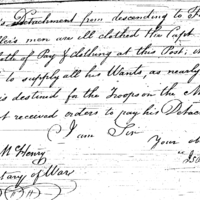 's Detachment from descending to
men are ill clothed the Capt
of Pay & Clothing at this Post,
to supply all his Wants, as nearly
is destined for the Troops on the M
t received orders to pay his Detac
I am Sir
Your ob
McHenry
tary of War